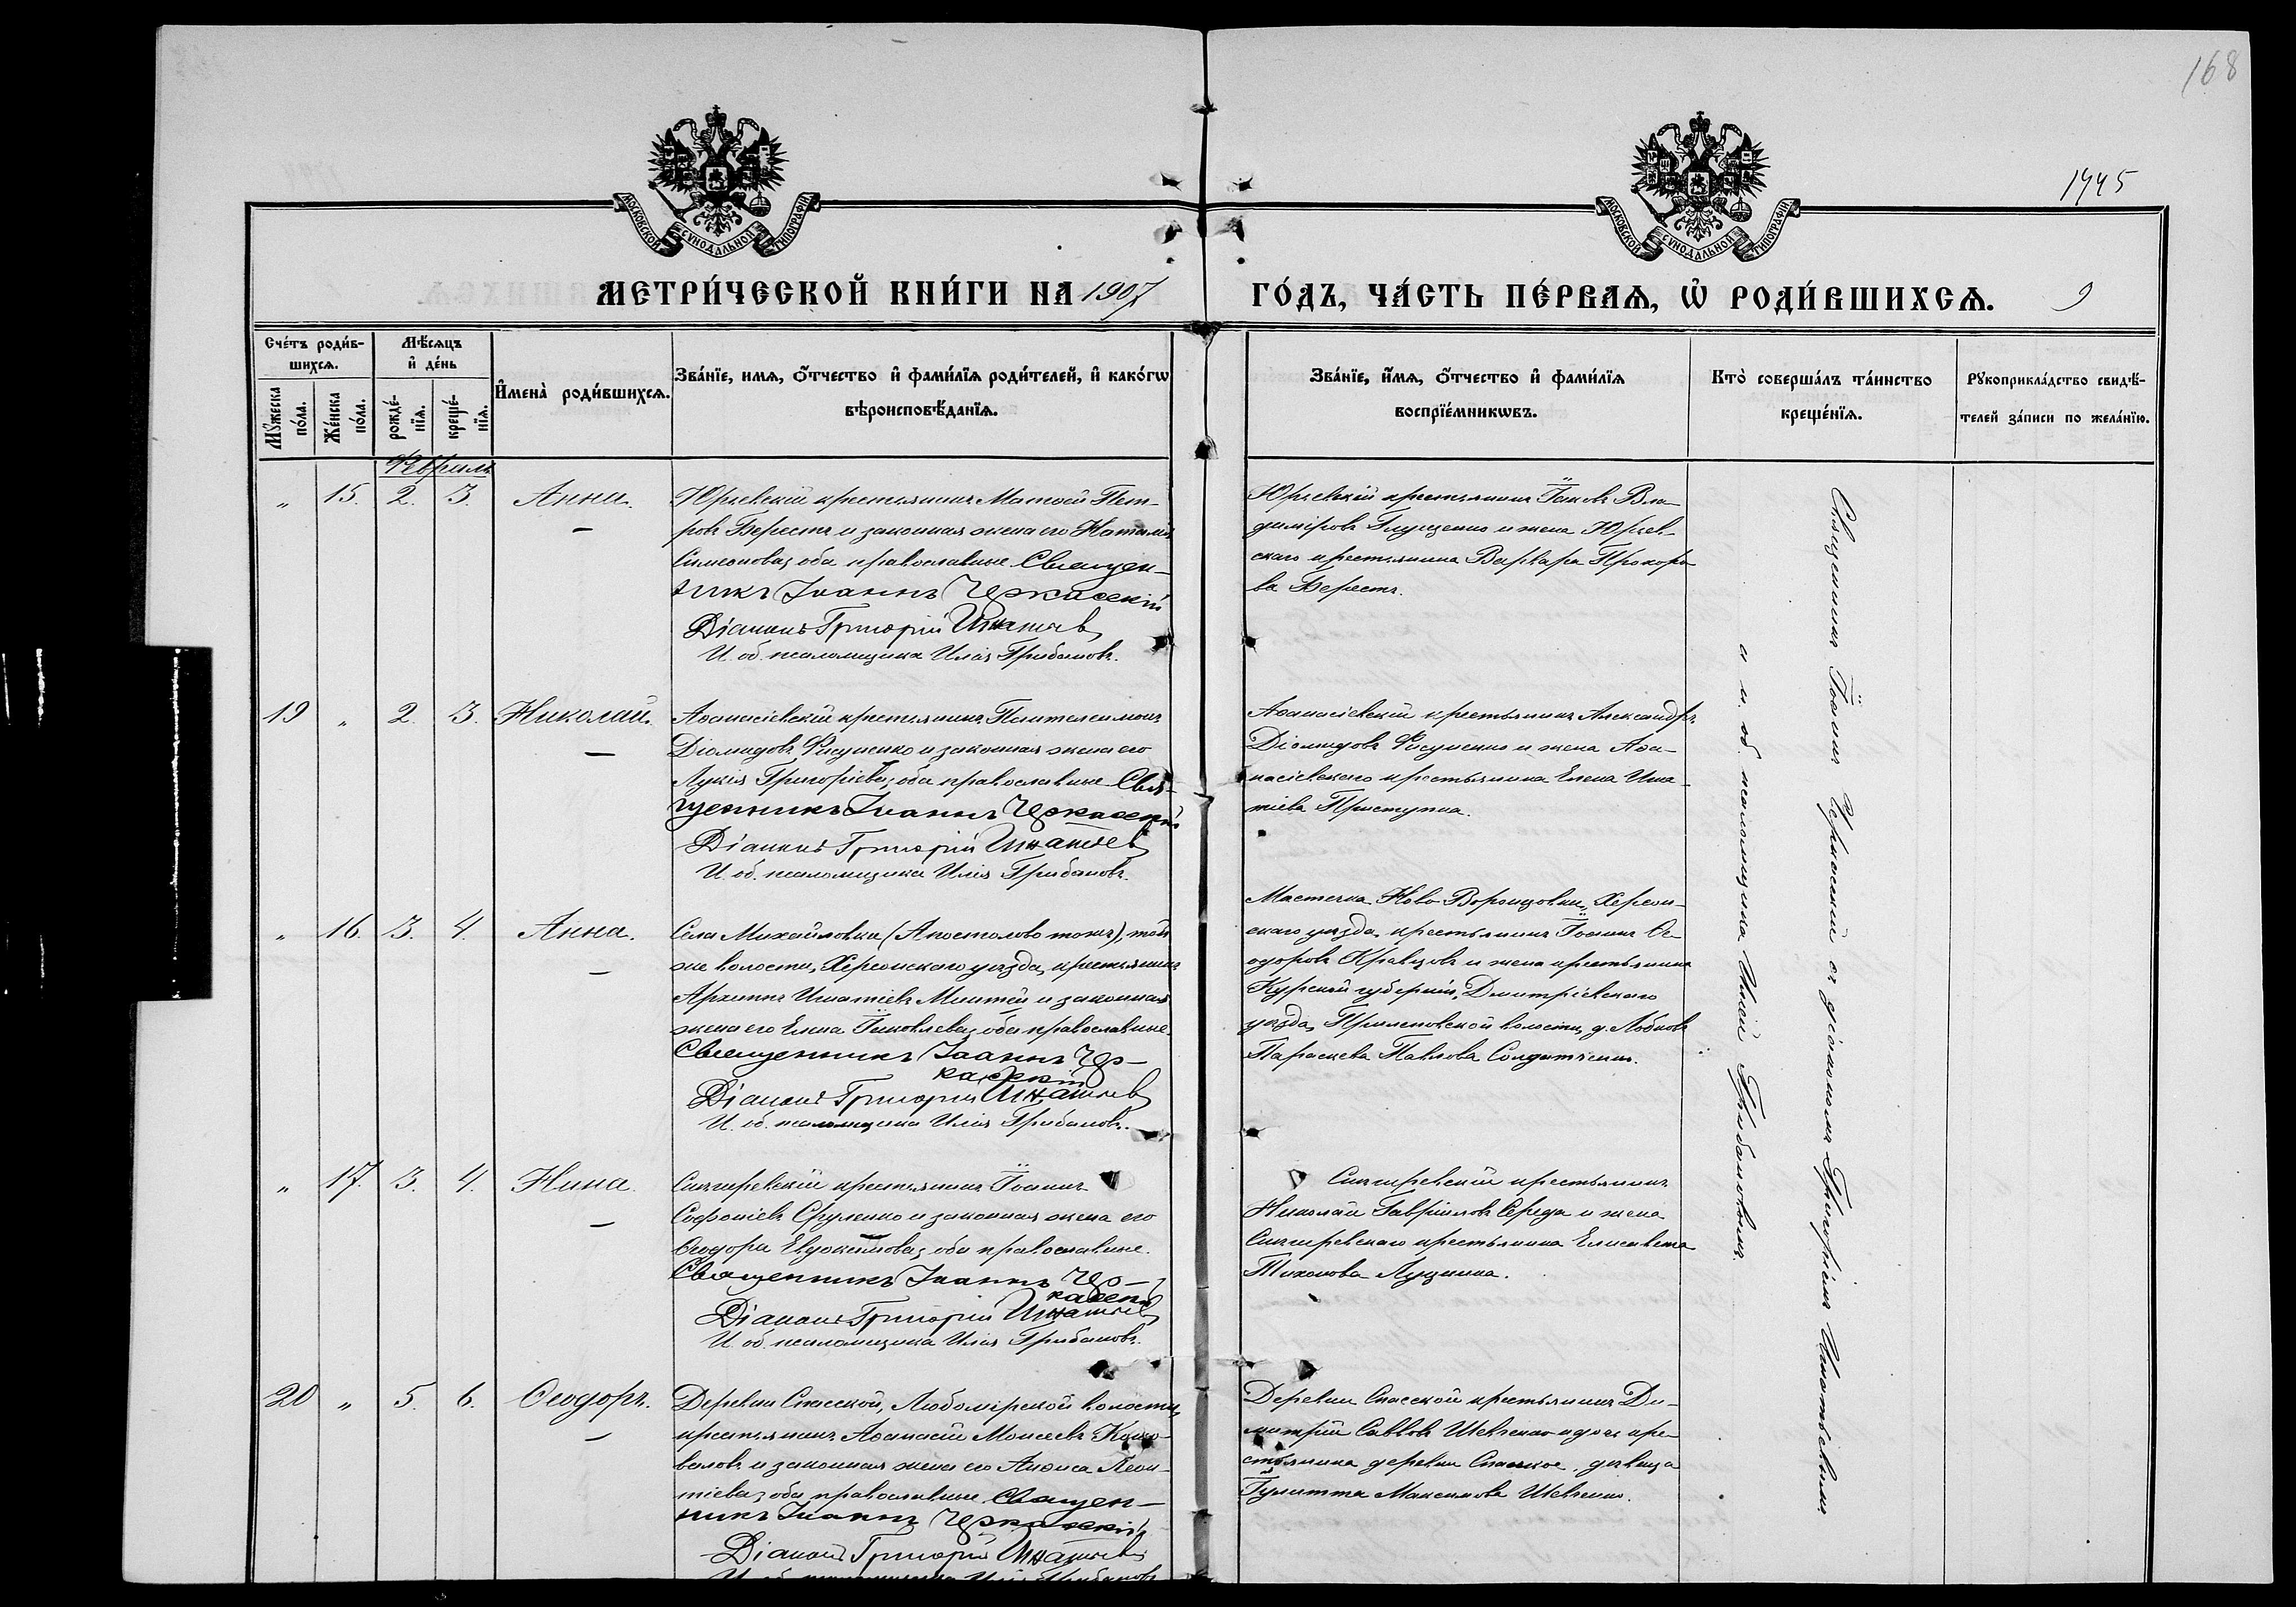 168
1945
МОСКОВСКОЙ СѴНОДАЛЬНОЙ ТИПОГРАФІИ
МОСКОВСКОЙ СѴНОДАЛЬНОЙ ТИПОГРАФІИ
МЕТРИ́ЧЕСКОЙ КНИ́ГИ НА 1907 ГО́ДЪ, ЧА́СТЬ ПЕ́РВАѦ, Ѡ҆ РОДИ́ВШИХСѦ. 9
Сче́тъ роди́в-
шихсѧ.
Мꙋ́жеска
по́ла.
Же́нска
по́ла.
Мѣ́сѧцъ
и҆ де́нь
рожде́-
нїѧ.
креще́-
нїѧ.
И҆мена̀ роди́вшихсѧ.
Зва́нїе, имѧ, ѻ҆́тчество и҆ фами́лїѧ роди́телей, и҆ како́гѡ
вѣроисповѣ́данїѧ.
Зва́нїе, и҆́мѧ, ѻ҆́тчество и҆ фами́лїѧ
воспрїе́мникѡвъ.
Кто̀ соверша́лъ та́инство
креще́нїѧ.
Рꙋкоприкла́дство свидѣ́-
телей за́писи по жела́нїю.
Февраль
" 15. 2. 3. Анна.
Юрьевскій крестьянинъ Матѳей Пет-
ровъ Берестъ и законная жена его Наталія
Симеонова, оба православные. Священ-
никъ Іоаннъ Черкасскій
Діаконъ Григорій Игнатьев
И. об. псаломщика Илія Грибановъ.
Юрьевскій крестьянинъ Іаковъ Вла-
диміровъ Глущенко и жена Юрьев-
скаго крестьянина Варвара Прохоро-
ва Берестъ.
19 " 2. 3. Николай.
Аѳанасіевскій крестьянинъ Пантелеимонъ
Діомидовъ Фисуненко и законная жена его
Лукія Григоріева, оба православные. Свя-
щенникъ Іоаннъ Черкасскій
Діаконъ Григорій Игнатьев
И. об. псаломщика Илія Грибановъ.
Аѳанасіевскій крестьянинъ Александръ
Діомидовъ Фисуненко и жена Аѳа-
насіевскаго крестьянина Елена Игна-
тіева Приступка.
" 16. 3. 4. Анна.
Села Михайловка (Апостолово тожъ), той
же волости, Херсонскаго уѣзда, крестьянинъ
Архиппъ Игнатіевъ и законная
жена его Елена Іаковлева, оба православные.
Священникъ Іоаннъ Чер-
касскій
Діаконъ Григорій Игнатьев
И. об. псаломщика Илія Грибановъ.
Мѣстечка Ново-Воронцовки, Херсон-
скаго уѣзда, крестьянинъ Іоаннъ Ѳе-
одоровъ Кравцовъ и жена крестьянина
Курской губерніи, Дмитріевскаго
уѣзда, волости, д.
Параскева Павлова Солдаткина.
" 17. 3. 4. Нина.
Снигиревскій крестьянинъ Іоаннъ
Софоніевъ и законная жена его
Ѳеодора Евдокимова, оба православные.
Священникъ Іоаннъ Чер-
касскій
Діаконъ Григорій Игнатьев
И. об. псаломщика Илія Грибановъ.
Снигиревскій крестьянинъ
Николай Гавріиловъ Середа и жена
Снигиревскаго крестьянина Елисавета
Тихонова Луценко.
20 " 5. 6. Ѳеодоръ.
Деревни Спасской, Любомірской волости,
крестьянинъ Аѳанасій Моисеевъ Коно-
валовъ и законная жена его Анфиса Леон-
тіева, оба православные. Священ-
никъ Іоаннъ Черкасскій
Діаконъ Григорій Игнатьев
И. об. псаломщика Илія Грибановъ
Деревни Спасской крестьянинъ Ди-
митрій Саввовъ Шевченко и дочь кре-
стьянина деревни Спасское, дѣвица
Іулитта Максимова Шевченко.
Священникъ Іоаннъ Черкасскій съ діакономъ Григоріемъ Игнатьевымъ
и и. об. псаломщика Иліей Грибановымъ.